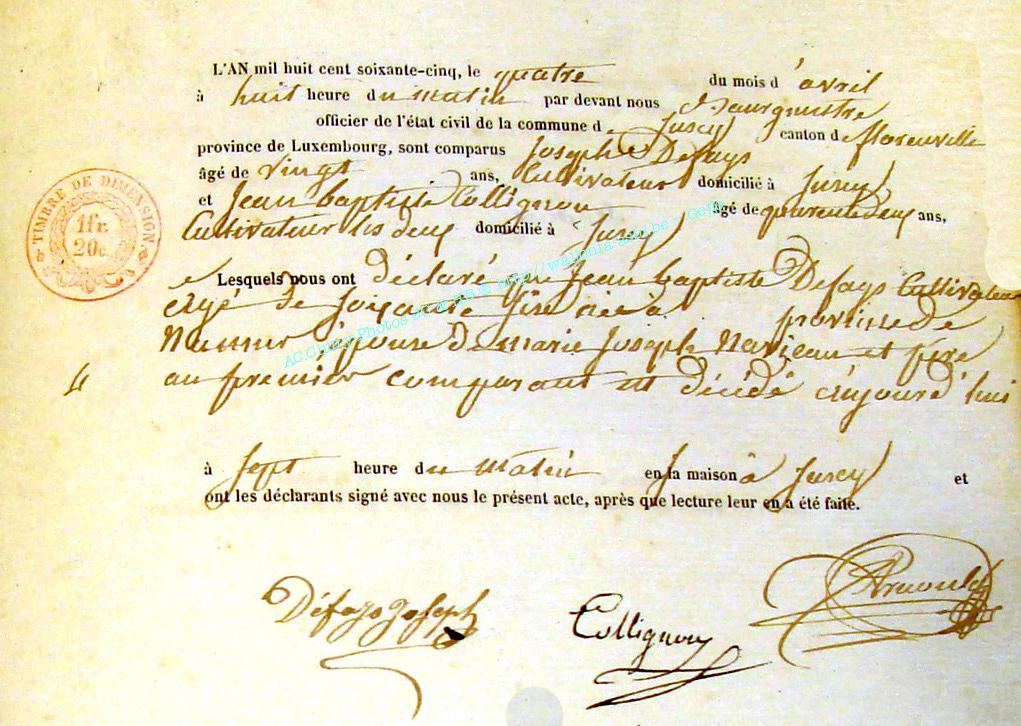 L'AN mil huit cent soixante-cinq, le quatre du mois d'avril
à huit heure du matin par devant nous Bourgmestre
officier de l'état civil de la commune de Jusey canton de florenville
province de Luxembourg, sont comparus Joseph Defays
âgé de vingt ans, Cultivateur domicilié à Jusey
et Jean baptiste Collignon âgé de quarente deux ans,
Cultivateur les deux domicilié à Jusey
TIMBRE DE DIMENSION
1fr.
20c.
Lesquels nous ont déclaré que Jean baptiste Defays Cultivateur
agé de soixante née à province de
Namur époux de marie Joseph et père
au premier comparant est décédé aujourd'hui
4
à sept heure du matin en sa maison à Jusey et
ont les déclarants signé avec nous le présent acte, après que lecture leur en a été faite.
Défays Joseph
Collignon
Arnould